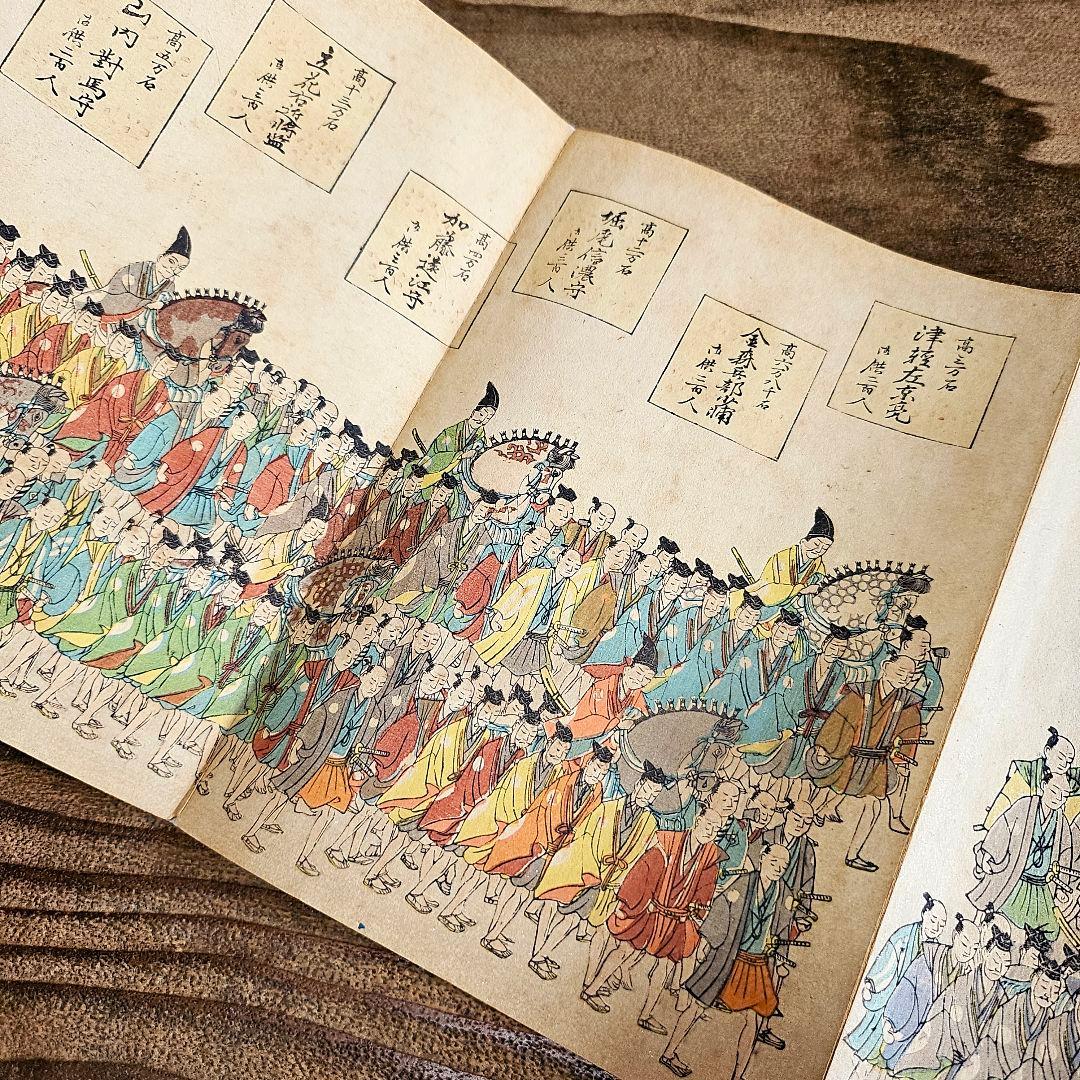 高三万石
津軽左京亮
御供二百人
高六万八千石
金森兵部少輔
御供二百人
高十二万石
堀尾信濃守
御供三百人
高四万石
加藤遠江守
御供三百人
高十三万石
立花右近将監
御供三百人
高五万石
山内對馬守
御供二百人